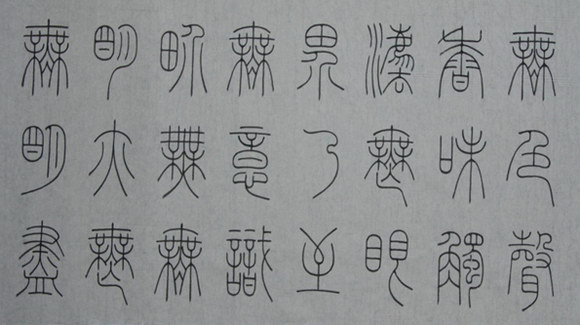 無色聲
香味觸
法無眼
界乃至
無意識
界無無
明亦無
無明盡